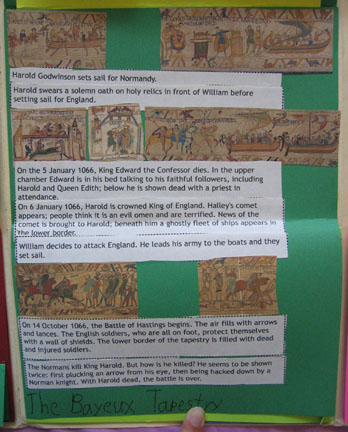 Harold Godwinson sets sail for Normandy.
Harold swears a solemn oath on holy relics in front of William before
setting sail for England.
On the 5 January 1066, King Edward the Confessor dies. In the upper
chamber Edward is in his bed talking to his faithful followers, including
Harold and Queen Edith; below he is shown dead with a priest in
attendance.
On 6 January 1066, Harold is crowned King of England. Halley's comet
appears; people think it is an evil omen and are terrified. News of the
comet is brought to Harold; beneath him a ghostly fleet of ships appears in
the lower border.
William decides to attack England. He leads his army to the boats and they
set sail.
On 14 October 1066, the Battle of Hastings begins. The air fills with arrows
and lances. The English soldiers, who are all on foot, protect themselves
with a wall of shields. The lower border of the tapestry is filled with dead
and injured soldiers.
The Normans kill King Harold. But how is he killed? He seems to be shown
twice: first plucking an arrow from his eye, then being hacked down by a
Norman knight. With Harold dead, the battle is over.
The Bayeux Tapestry